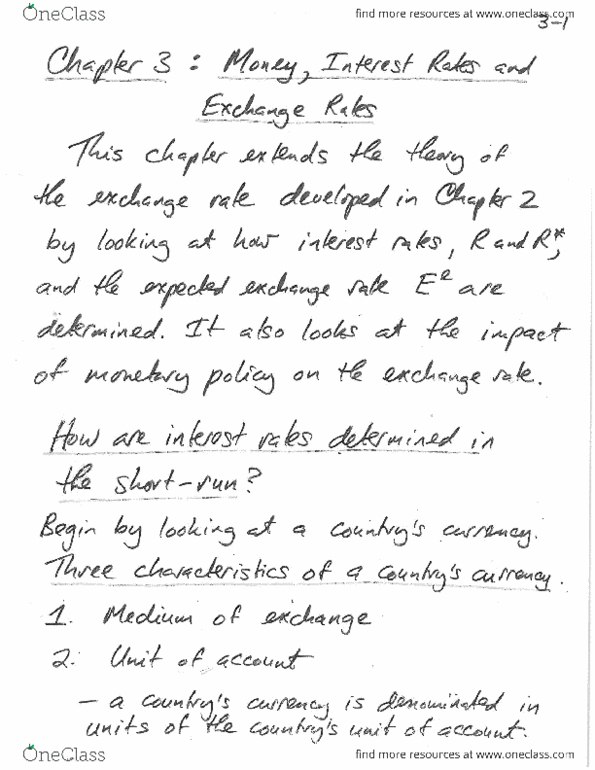 OneClass
find more resources at www.oneclass.com
3-1
Chapter 3 : Money, Interest Rates and
Exchange Rates
This chapter extends the theory of
the exchange rate developed in Chapter 2
by looking at how interest rates, R and R*,
and the expected exchange rate Eᵉ are
determined. It also looks at the impact
of monetary policy on the exchange rate.
How are interest rates determined in
the short-run?
Begin by looking at a country's currency.
Three characteristics of a country's currency.
1. Medium of exchange
2. Unit of account
— a country's currency is denominated in
units of the country's unit of account.
OneClass
find more resources at www.oneclass.com